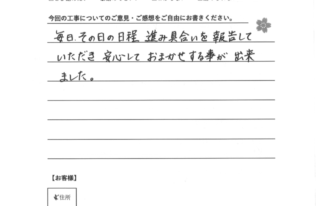 今回の工事についてのご意見・ご感想をご自由にお書きください。
毎日、その日の日程 進み具合いを 報告して
いただき 安心して おまかせする事が 出来
ました。
【お客様】
ご住所